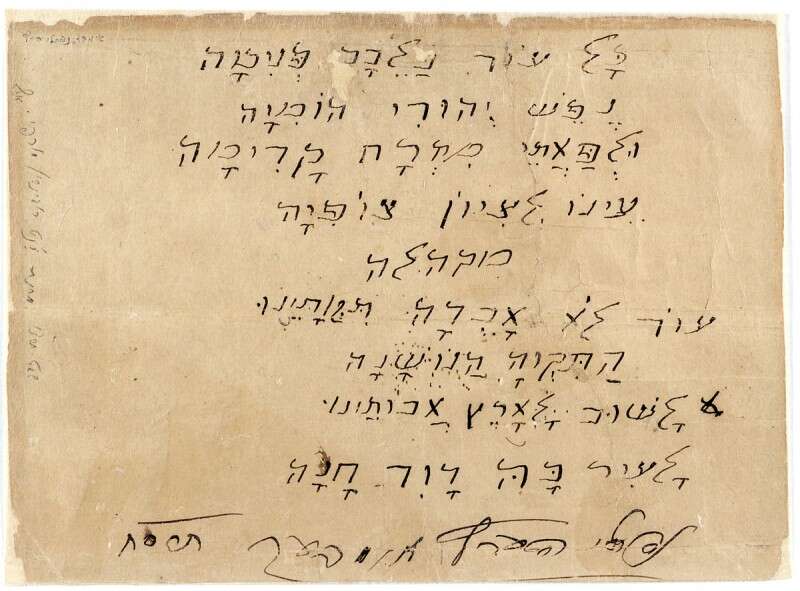 כָּל עוֹד בַּלֵבָב פְּנִימָה
נֶפֶשׁ יְהוּדִי הוֹמִיָה
וּלְפַאֲתֵי מִזְרָח קָדִימָה
עֵינוֹ לְצִיוֹן צוֹפִיָה
מקהלה
עוֹד לֹא אָבְדָה תִּקְוָתֵינוּ
הַתִּקְוָה הַנוֹשָׁנָה
לָשׁוּב לָאָרֶץ אֲבוֹתֵינוּ
לָעִיר בָּהּ דָוִד חָנָה
נפתלי הערץ אימבער תרסח